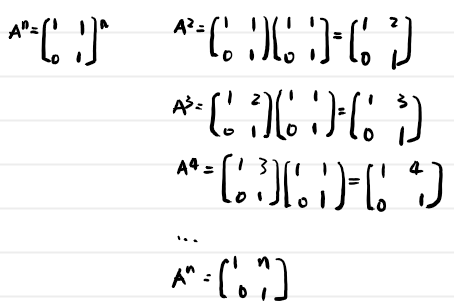 Aⁿ = [1 1; 0 1]ⁿ    A² = [1 1; 0 1][1 1; 0 1] = [1 2; 0 1]
A³ = [1 2; 0 1][1 1; 0 1] = [1 3; 0 1]
A⁴ = [1 3; 0 1][1 1; 0 1] = [1 4; 0 1]
...
Aⁿ = [1 n; 0 1]